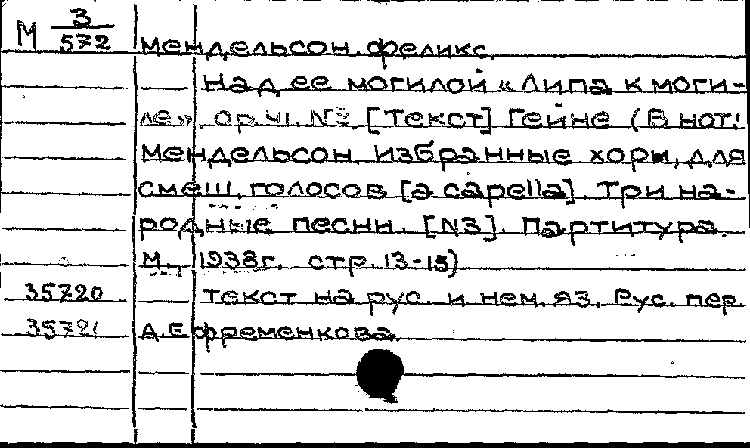 М 3/572
Мендельсон. Феликс.
Над ее могилой «Липа к моги-
ле». ор.41. №3. [Текст] Гейне (В нот:
Мендельсон. Избранные хоры, для
смеш. голосов [a capella]. Три на-
родные песни. [№3]. Партитура.
М., 1938г. стр.13-15)
35720 Текст на рус. и нем. яз. Рус. пер
35721 А.Ефременкова.